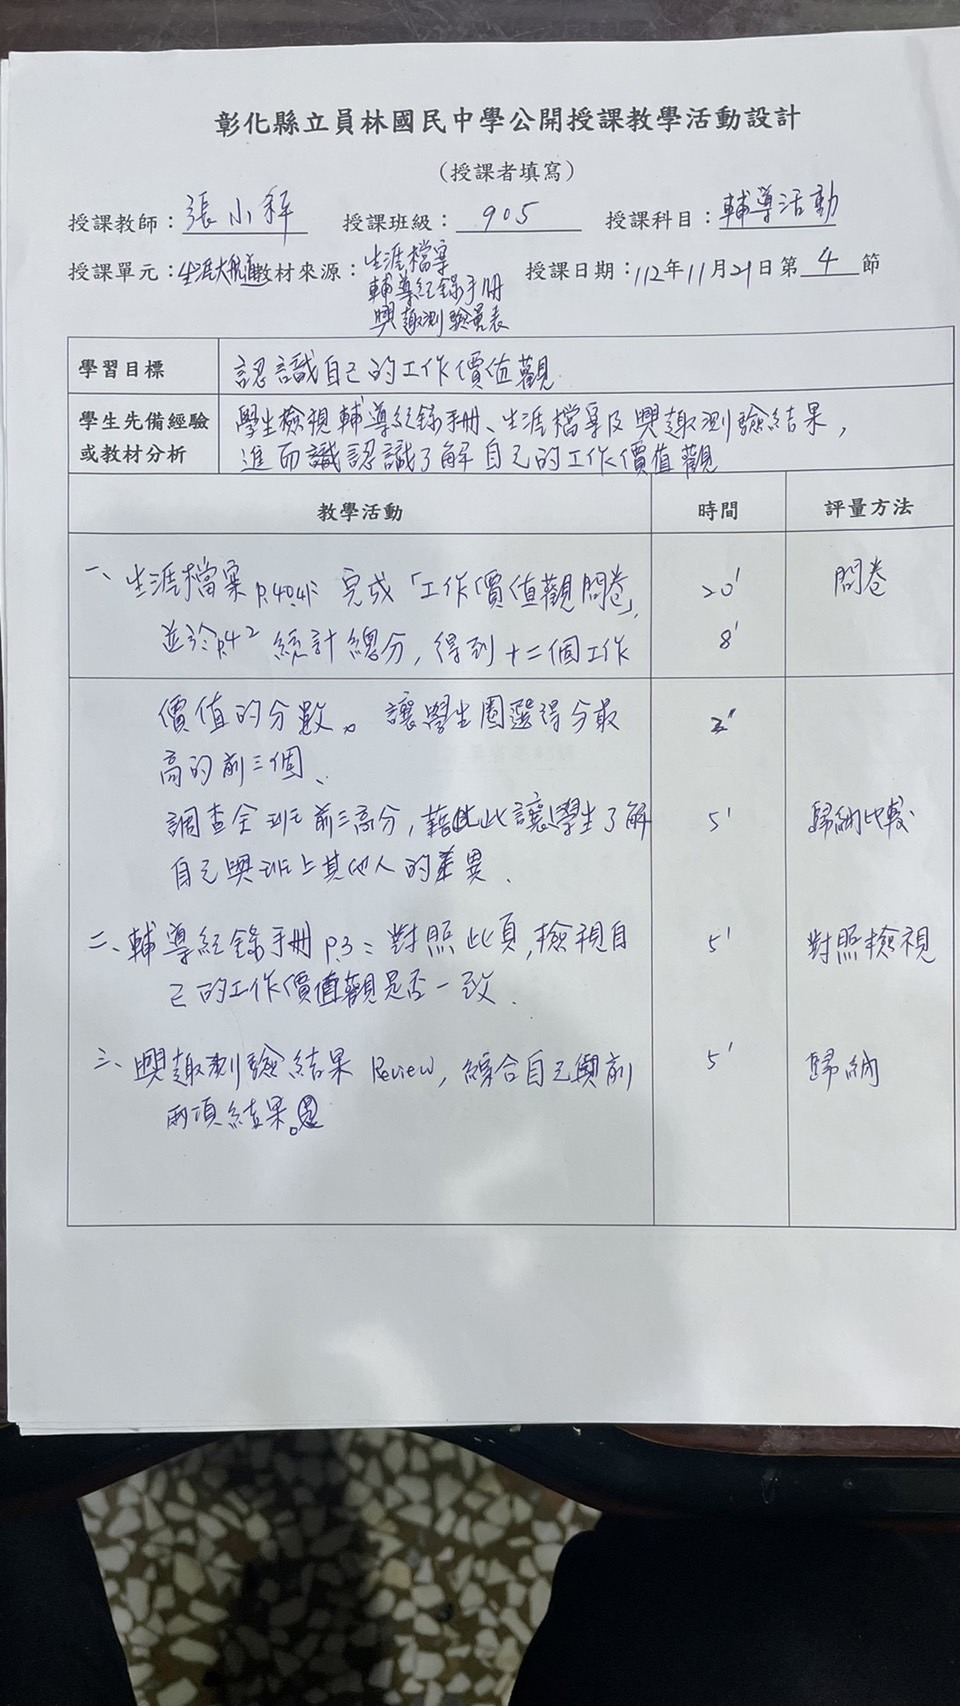 彰化縣立員林國民中學公開授課教學活動設計
（授課者填寫）
授課教師：張小 授課班級：905 授課科目：輔導活動
授課單元：生涯大航道 教材來源：生涯檔案 授課日期：112年11月21日第4節
輔導紀錄手冊
興趣測驗量表
學習目標 認識自己的工作價值觀
學生先備經驗 學生檢視輔導紀錄手冊、生涯檔案及興趣測驗結果，
或教材分析 進而識認識了解自己的工作價值觀
教學活動 時間 評量方法
一、生涯檔案 P.40.41: 完成「工作價值觀問卷」, 20' 問卷
並於P.42 統計總分，得到十二個工作 8'
價值的分數。讓學生圈選得分最 2'
高的前三個、
調查全班前三高分，藉此讓學生了解 5' 歸納比較
自己與班上其他人的差異.
二、輔導紀錄手冊 P.3：對照此頁，檢視自 5' 對照檢視
己的工作價值觀是否一致.
三、興趣測驗結果 Review，綜合自己與前 5' 歸納
兩項結果。